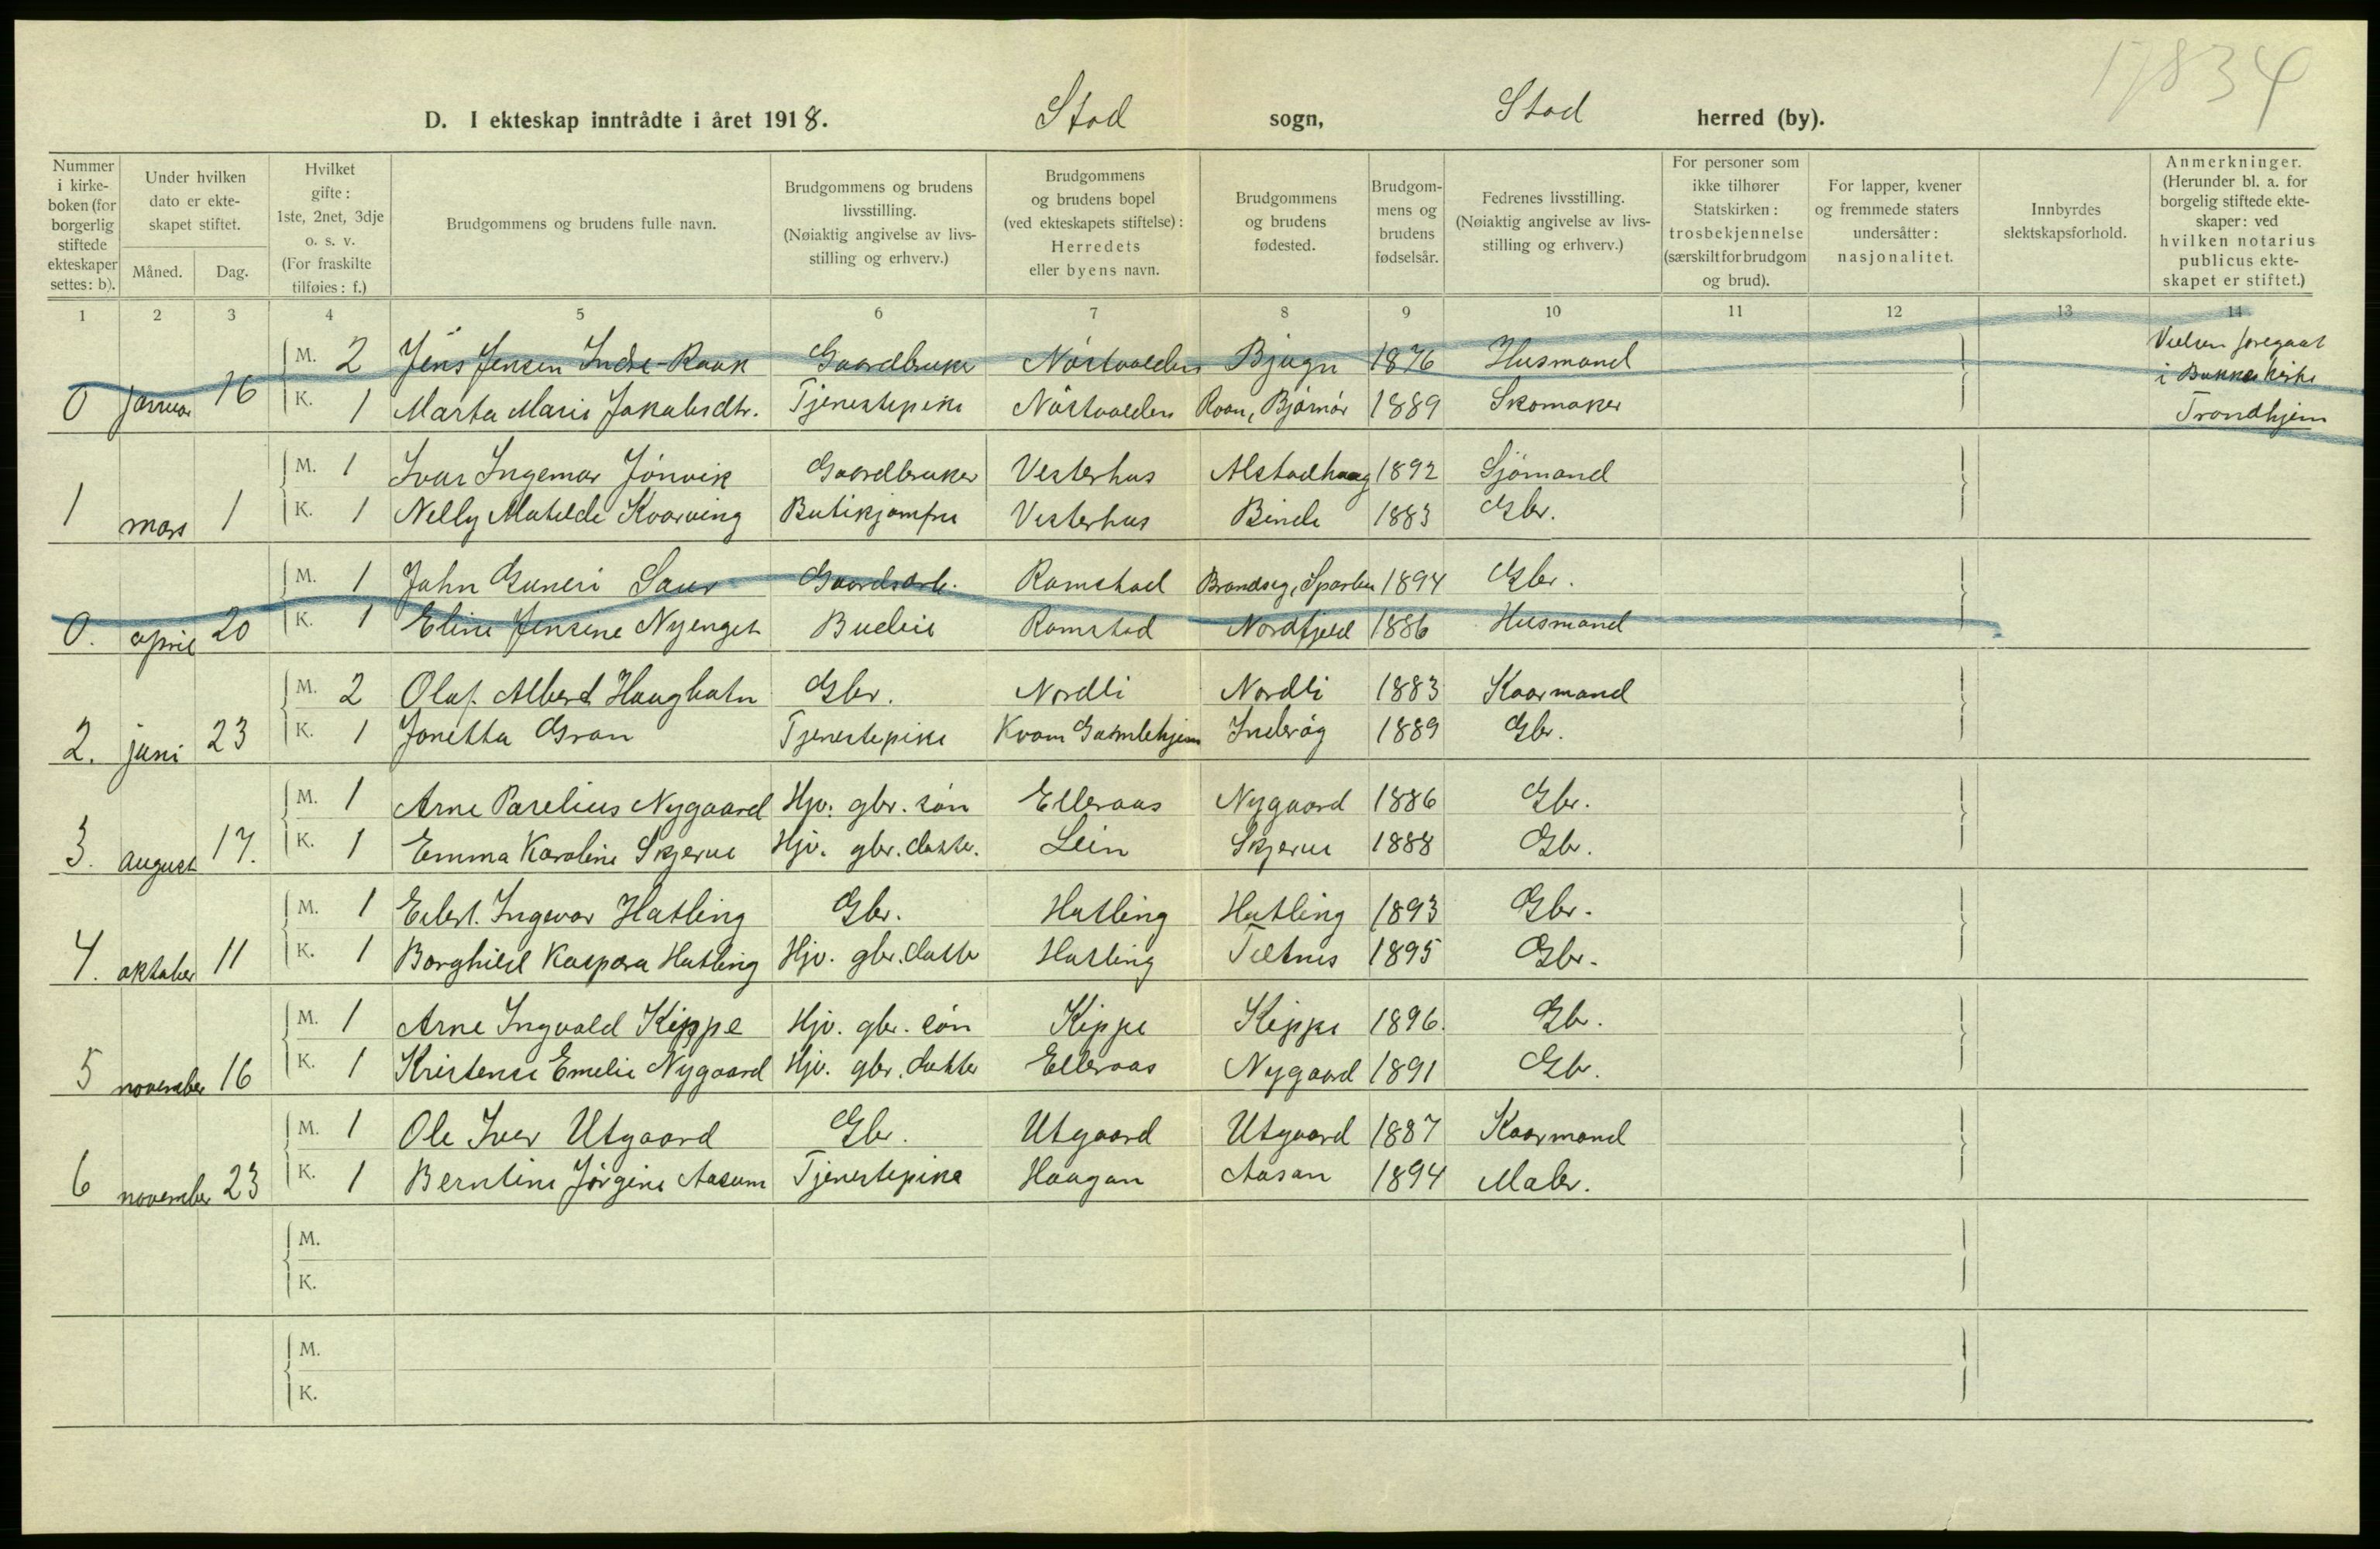 17834
D. I ekteskap inntrådte i året 1918. Stod sogn, Stod herred (by).
Nummer i kirke-boken (for borgerlig stiftede ekteskaper settes: b). Under hvilken dato er ekte-skapet stiftet. Måned. Dag. Hvilket gifte: 1ste, 2net, 3dje o. s. v. (For fraskilte tilføies: f.) Brudgommens og brudens fulle navn. Brudgommens og brudens livsstilling. (Nøiaktig angivelse av livs-stilling og erhverv.) Brudgommens og brudens bopel (ved ekteskapets stiftelse): Herredets eller byens navn. Brudgommens og brudens fødested. Brudgom-mens og brudens fødselsår. Fedrenes livsstilling. (Nøiaktig angivelse av livs-stilling og erhverv.) For personer som ikke tilhører Statskirken: trosbekjennelse (særskilt for brudgom og brud). For lapper, kvener og fremmede staters undersåtter: nasjonalitet. Innbyrdes slektskapsforhold. Anmerkninger. (Herunder bl. a. for borgelig stiftede ekte-skaper: ved hvilken notarius publicus ekte-skapet er stiftet.)
1 2 3 4 5 6 7 8 9 10 11 12 13 14
M. 2 Jens Jensen Indre-Raak Gaardbruker Nöstvolden Bjugn 1876 Husmand Vielsen foregaat i Bakke kirke
0 januar 16 K. 1 Marta Marie Jakobsdtr. Tjenestepike Nöstvolden Roan, Björnör 1889 Skomaker Trondhjem
M. 1 Ivar Ingemar Jönvik Gaardbruker Vesterhus Alstadhaug 1892 Sjömand
1 mars 1 K. 1 Nelly Matilde Kvarving Butikjomfru Vesterhus Binde 1883 Gbr.
M. 1 John Guneri Saur Gaardsarb. Ramstad Brandseg, Sparbu 1894 Gbr.
0. april 20 K. 1 Eline Jensine Nyenget Budeie Ramstad Nordfjeld 1886 Husmand
M. 2 Olaf Albert Haugbotn Gbr. Nordli Nordli 1883 Kaarmand
2. juni 23 K. 1 Jonetta Gran Tjenestepike Kvam Gamlehjem Inderöy 1889 Gbr.
M. 1 Arne Parelius Nygaard Hjv. gbr. sön Elleraas Nygaard 1886 Gbr.
3. august 17. K. 1 Emma Karoline Skjerve Hjv. gbr. datter. Lein Skjerve 1888 Gbr.
M. 1 Edert. Ingvar Hatling Gbr. Hatling Hatling 1893 Gbr.
4. oktober 11 K. 1 Borghild Kaspara Hatling Hjv. gbr. datter Hatling Tiltnes 1895 Gbr.
M. 1 Arne Ingvald Kippe Hjv. gbr. sön Kippe Kippe 1896. Gbr.
5 november 16 K. 1 Kristense Emelie Nygaard Hjv. gbr. datter Elleraas Nygaard 1891 Gbr.
M. 1 Ole Iver Utgaard Gbr. Utgaard Utgaard 1887 Kaarmand
6 november 23 K. 1 Berntine Jörgine Aasum Tjenestepike Haagan Aasan 1894 Maler.
M.
K.
M.
K.